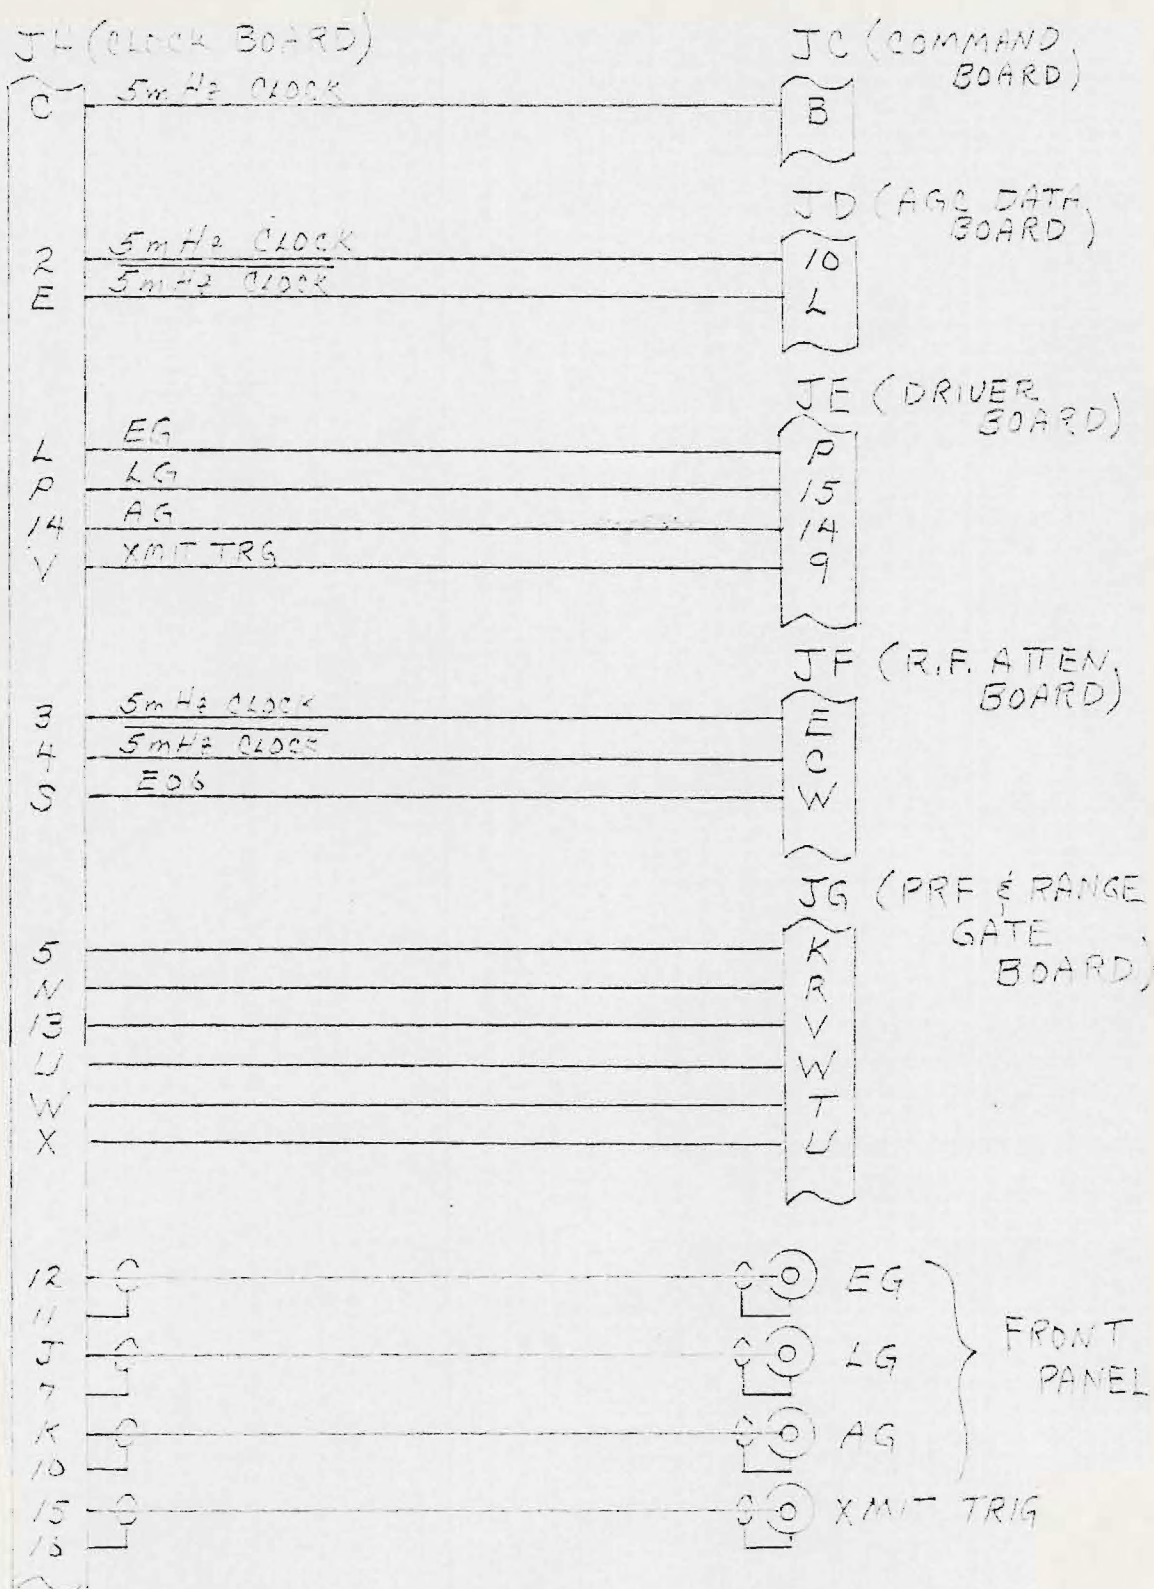 JH (CLOCK BOARD)
JC (COMMAND BOARD)
C 5mHz CLOCK B
JD (AGC DATA BOARD)
2 5mHz CLOCK 10
E 5mHz CLOCK L
JE (DRIVER BOARD)
L EG P
P LG 15
14 AG 14
V XMIT TRG 9
JF (R.F. ATTEN. BOARD)
3 5mHz CLOCK E
4 5mHz CLOCK C
S EOG W
JG (PRF & RANGE GATE BOARD)
5 K
N R
13 V
U W
W T
X U
12 EG
11
J LG
7
K AG
10
FRONT PANEL
15 XMIT TRIG